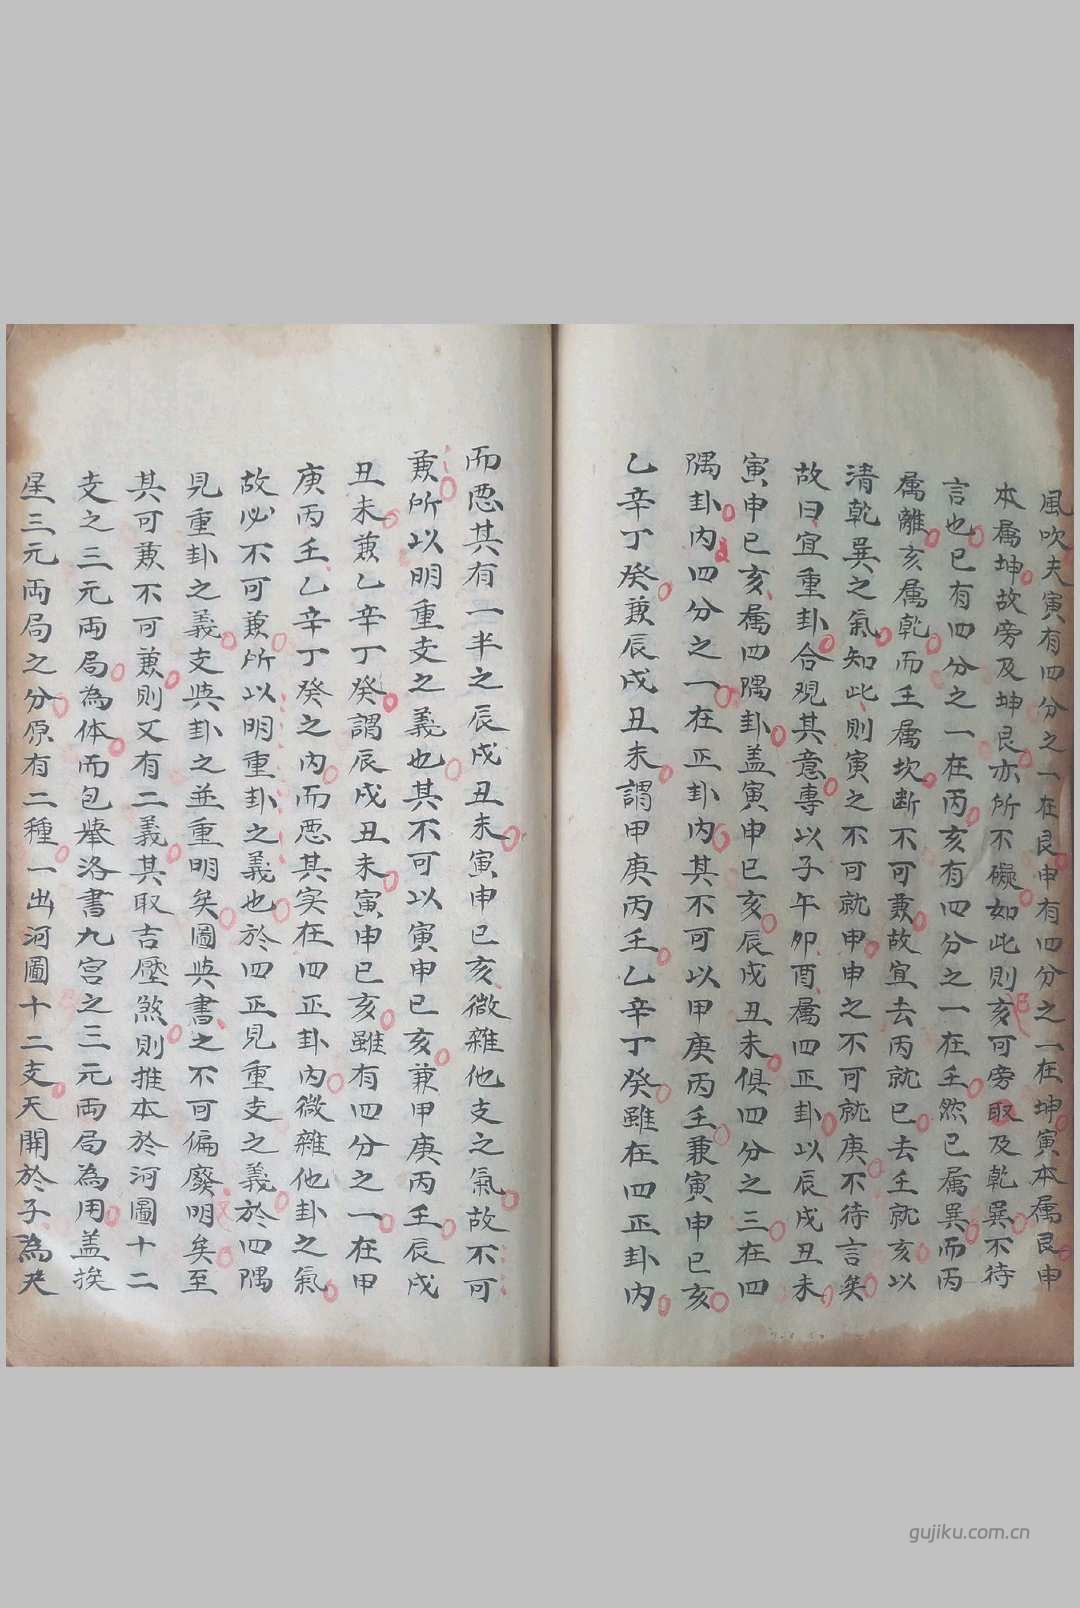 風吹夫寅有四分之一在艮申有四分之一在坤寅本属艮申
本属坤故旁及坤艮亦所不礙如此則亥可旁取及乾巽不待
言也巳有四分之一在丙亥有四分之一在壬然巳属巽而丙
属離亥属乾而壬属坎断不可兼故宜去丙就巳去壬就亥以
清乾巽之氣知此則寅之不可就甲申之不可就庚不待言矣
故曰宜重卦合观其意專以子午卯酉属四正卦以辰戌丑未
寅申巳亥属四隅卦盖寅申巳亥辰戌丑未俱四分之三在四
隅卦内四分之一在正卦内其不可以甲庚丙壬兼寅申巳亥
乙辛丁癸兼辰戌丑未謂甲庚丙壬乙辛丁癸雖在四正卦内
而恶其有一半之辰戌丑未寅申巳亥微雜他支之氣故不可
兼所以明重支之義也其不可以寅申巳亥兼甲庚丙壬辰戌
丑未兼乙辛丁癸謂辰戌丑未寅申巳亥雖有四分之一在甲
庚丙壬乙辛丁癸之内而恶其实在四正卦内微雜他卦之氣
故必不可兼所以明重卦之義也於四正見重支之義於四隅
見重卦之義支與卦之並重明矣圖與書之不可偏廢明矣至
其可兼不可兼則又有二義其取吉壓煞則推本於河圖十二
支之三元両局為体而包舉洛書九宮之三元両局為用盖挨
星三元両局之分原有二種一出河圖十二支天開於子為天
gujiku.com.cn